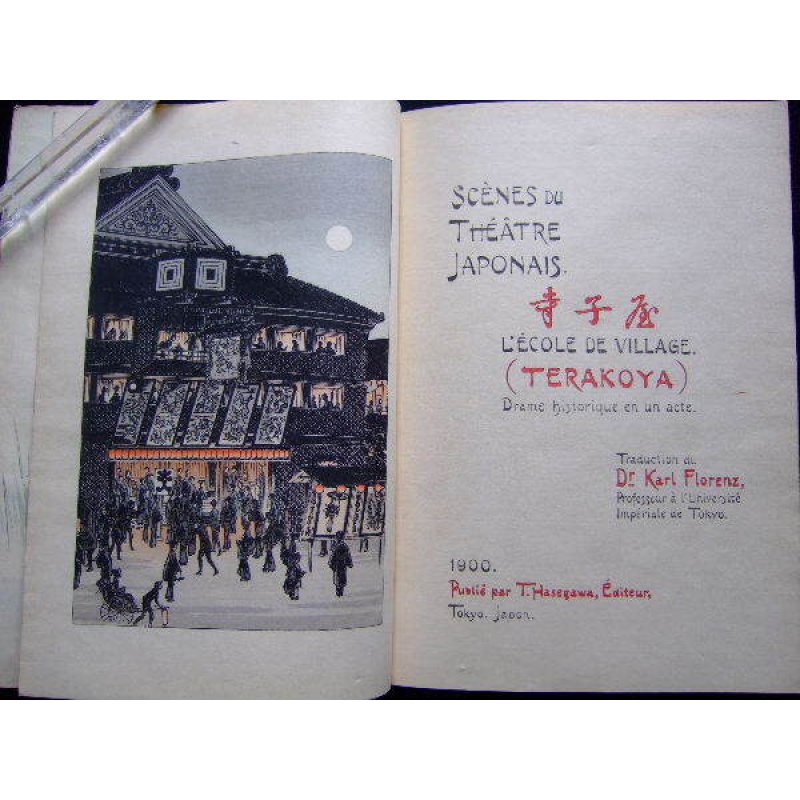 SCÈNES DU
THÉÂTRE
JAPONAIS.
寺子屋
L'ÉCOLE DE VILLAGE.
(TERAKOYA)
Drame historique en un acte.
Traduction du
Dr Karl Florenz,
Professeur à l'Université
Impériale de Tokyo.
1900.
Publié par T. Hasegawa, Éditeur,
Tokyo. Japon.